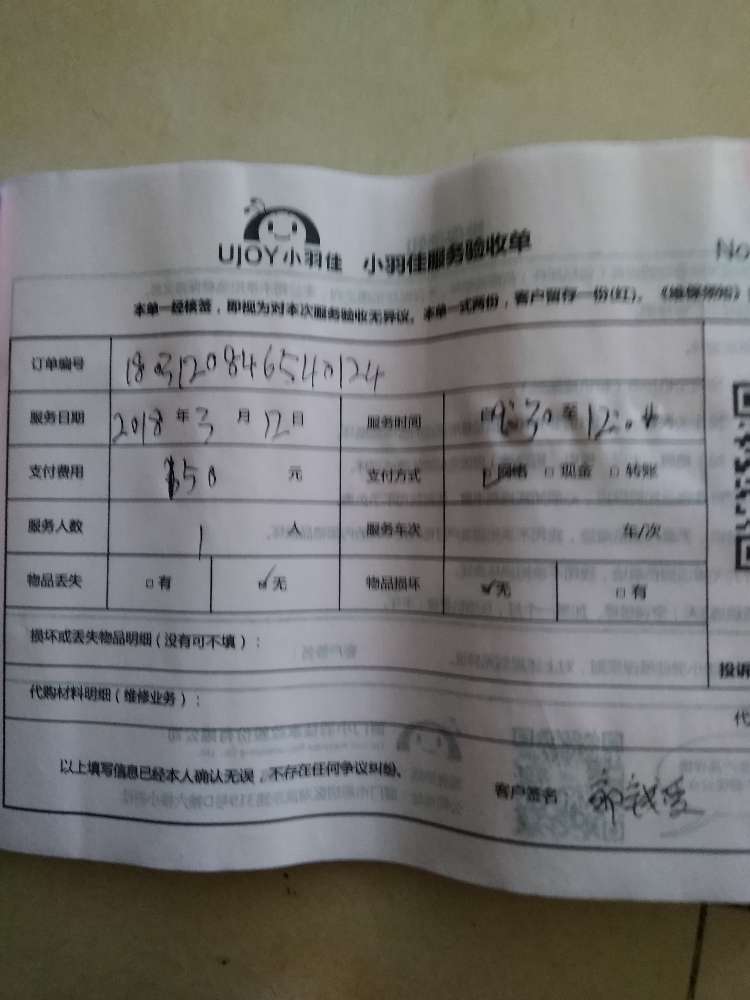 UJOY小羽佳 小羽佳服务验收单 No
本单一经核签，即视为对本次服务验收无异议。本单一式两份，客户留存一份(红)。《维保须知》
订单编号 1803120846540124
服务日期 2018年3月12日 服务时间 自9:30至12:00
支付费用 150元 支付方式 网络 □现金 □转账
服务人数 1人 服务车次 年/次
物品丢失 □有 ✓无 物品损坏 ✓无 □有
损坏或丢失物品明细（没有可不填）：
投诉
代购材料明细（维修业务）：
代
以上填写信息已经本人确认无误，不存在任何争议纠纷。
客户签名